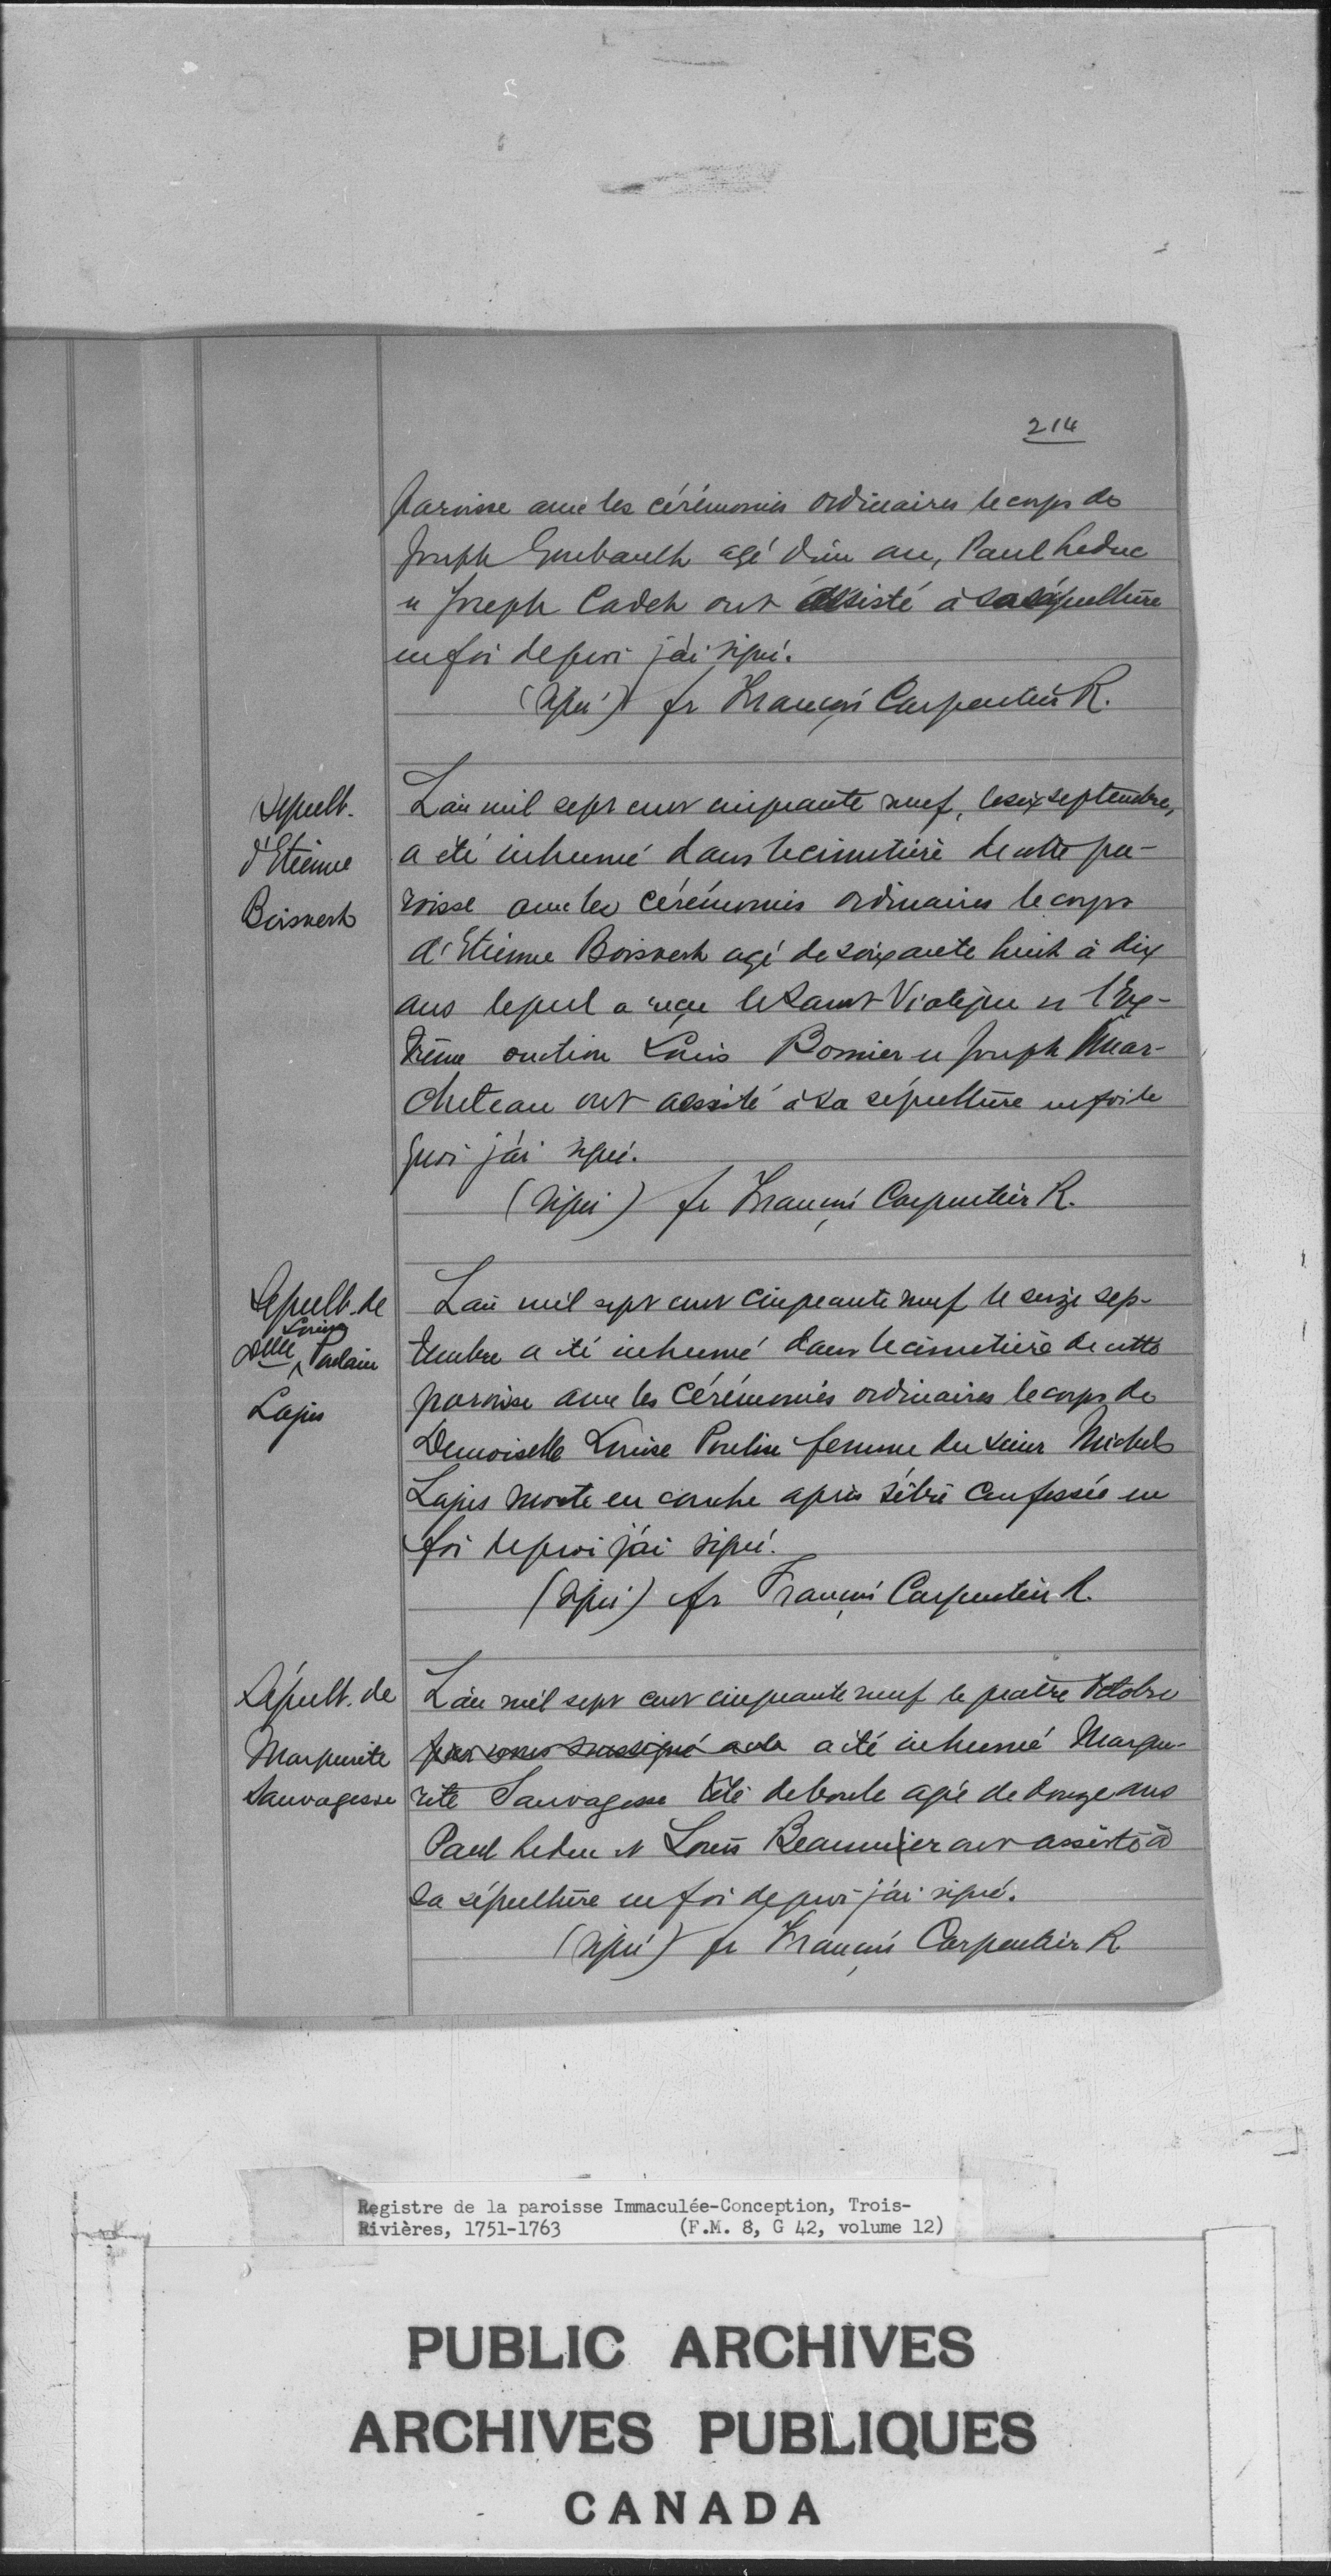 214
paroisse avec les cérémonies ordinaires le corps de
Joseph Goubault agé d'un an, Paul Leduc
et Joseph Cadet ont assisté à sa sépulture
en foi de quoi j'ai signé.
(signé) fr François Carpentier R.
Sepult.
d'Etienne
Boisvert
L'an mil sept cent cinquante neuf, le six septembre,
a été inhumé dans le cimetière de cette pa-
roisse avec les cérémonies ordinaires le corps
d'Etienne Boisvert agé de soixante huit à dix
ans lequel a reçu le Saint Viatique et l'Ex-
trême onction Louis Bomier et Joseph Mar-
cheteau ont assisté à sa sépulture en foi de
quoi j'ai signé.
(signé) fr François Carpentier R.
Sepult. de
Delle Louise Poulain
Lajus
L'an mil sept cent cinquante neuf le seize sep-
tembre a été inhumé dans le cimetière de cette
paroisse avec les cérémonies ordinaires le corps de
Demoiselle Louise Poulin femme du sieur Michel
Lajus morte en couche après s'être confessée en
foi de quoi j'ai signé.
(signé) fr François Carpentier R.
Sépult. de
Marguerite
Sauvagesse
L'an mil sept cent cinquante neuf le quatre Octobre
par nous soussigné a été inhumé Margue-
rite Sauvagesse tête de boule agée de douze ans
Paul Leduc et Louis Beaumier ont assisté à
sa sépulture en foi de quoi j'ai signé.
(signé) fr François Carpentier R
Registre de la paroisse Immaculée-Conception, Trois-
Rivières, 1751-1763 (F.M. 8, G 42, volume 12)
PUBLIC ARCHIVES
ARCHIVES PUBLIQUES
CANADA